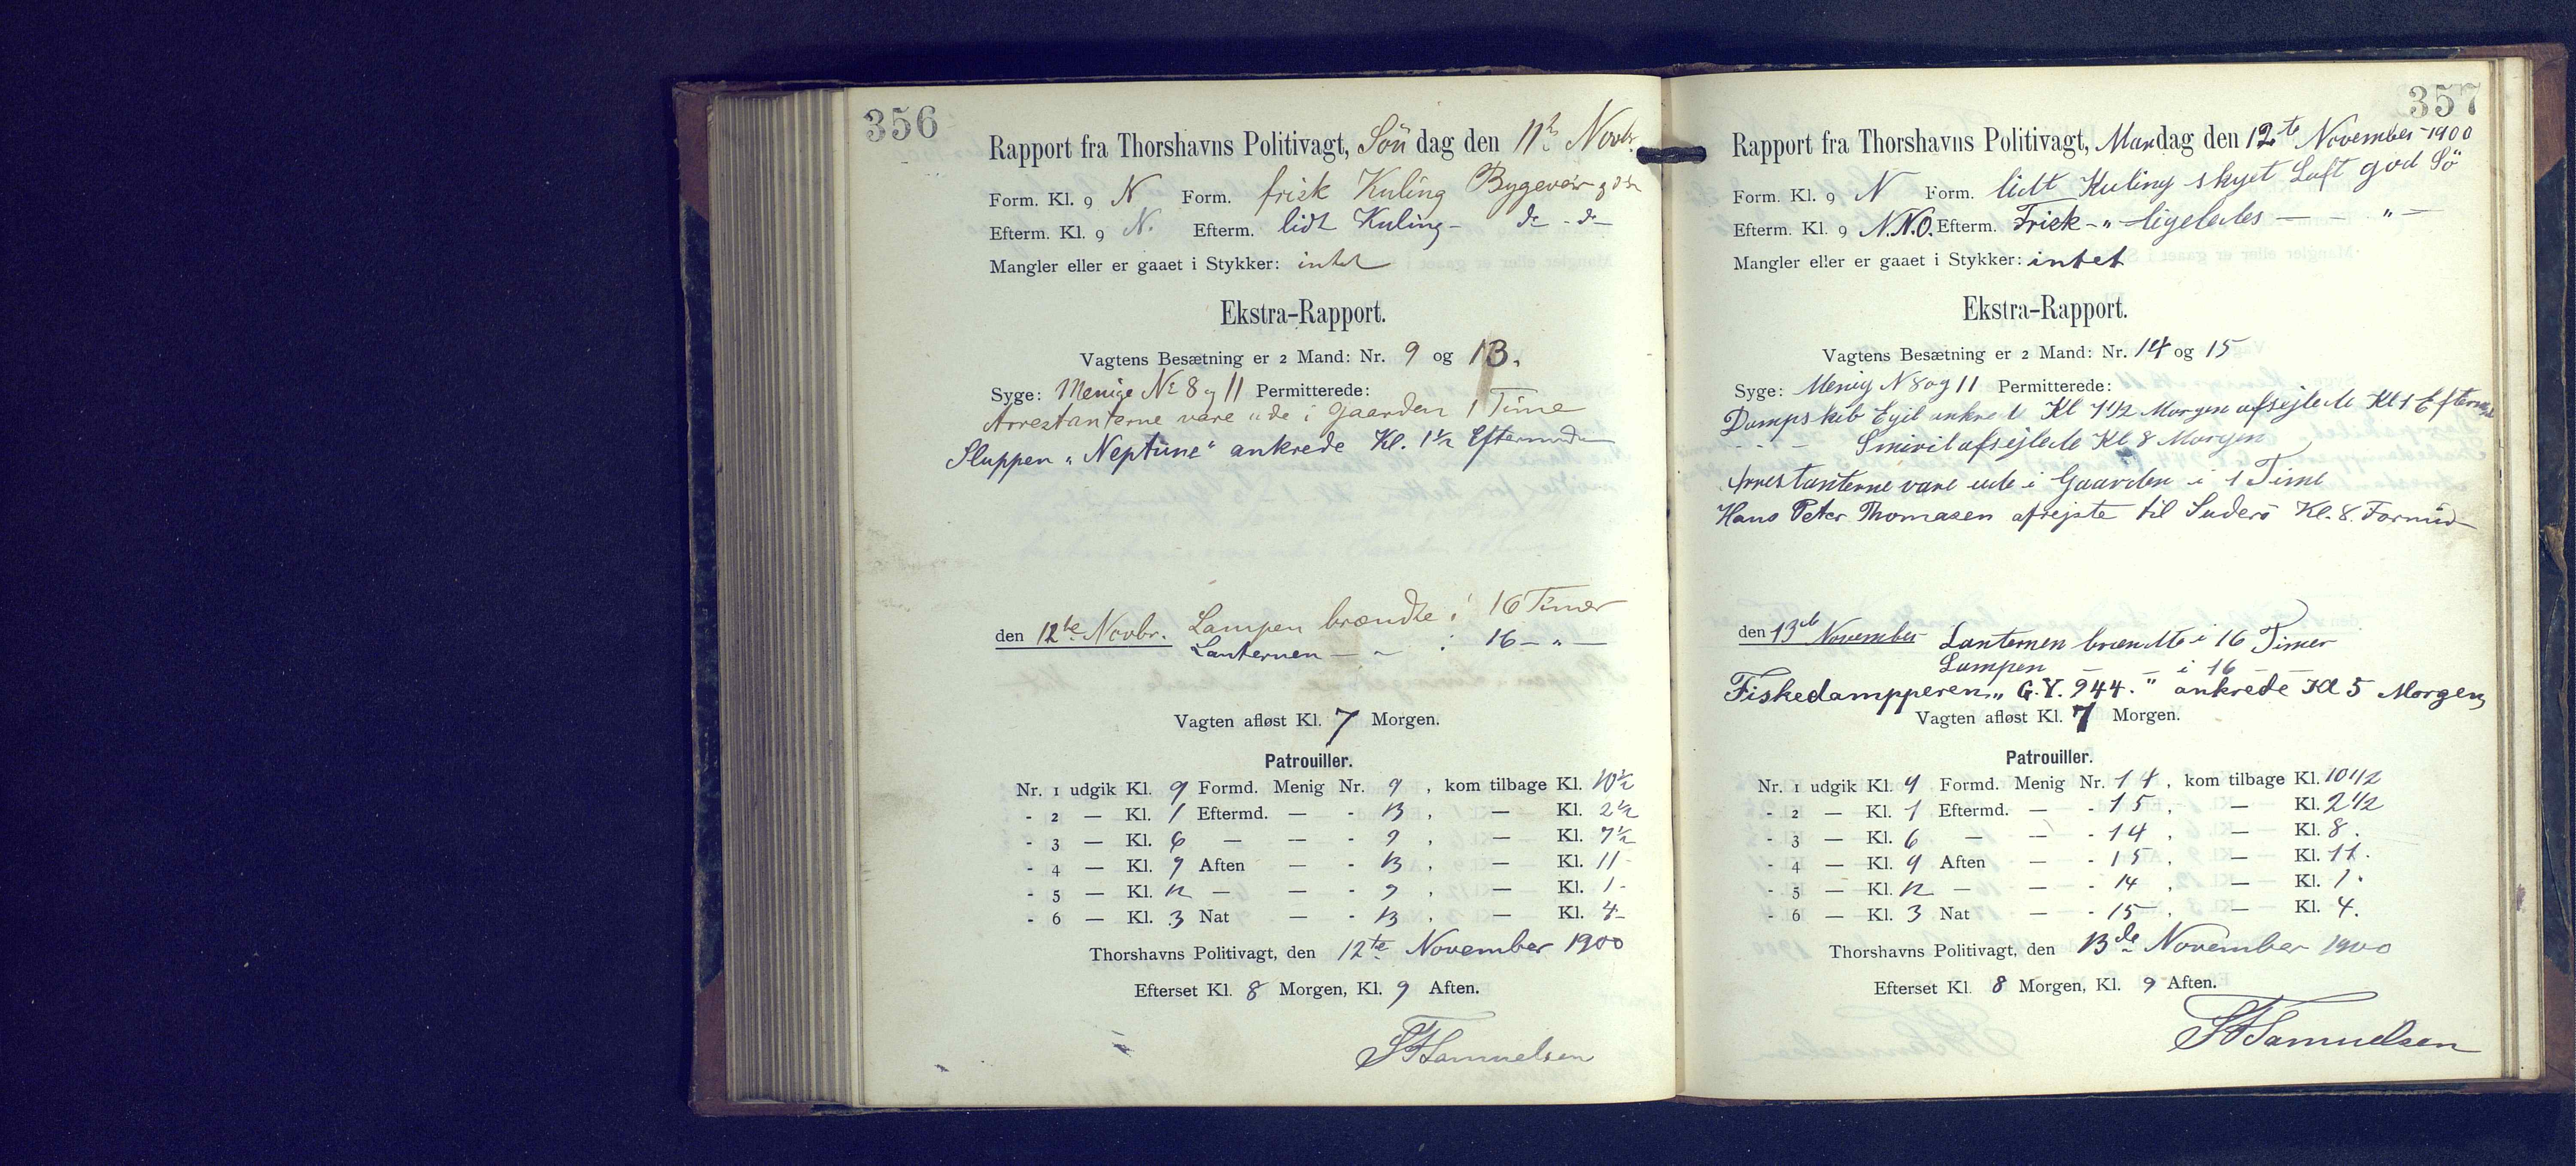 356
Rapport fra Thorshavns Politivagt, Søn dag den 11te Novbr.
Form. Kl. 9 N Form. frisk Kuling Bygeveir
Efterm. Kl. 9 N. Efterm. lidt Kuling - do - do
Mangler eller er gaaet i Stykker: intet
Ekstra-Rapport.
Vagtens Besætning er 2 Mand: Nr. 9 og 13.
Syge: Menige No 8 og 11 Permitterede:
Arrestanterne vare ude i Gaarden 1 Time
Sluppen „Neptune“ ankrede Kl. 1½ Eftermiddag
den 12te Novbr. Lampen brændte i 16 Timer
Lanternen — „ i 16 — „ —
Vagten afløst Kl. 7 Morgen.
Patrouiller.
Nr. 1 udgik Kl. 9 Formd. Menig Nr. 9 , kom tilbage Kl. 10½
- 2 — Kl. 1 Eftermd. — - 13 , — Kl. 2½
- 3 — Kl. 6 — — - 9 , — Kl. 7½
- 4 — Kl. 9 Aften — - 13 , — Kl. 11 -
- 5 — Kl. 12 — — - 9 , — Kl. 1 -
- 6 — Kl. 3 Nat — - 13 , — Kl. 4 -
Thorshavns Politivagt, den 12te November 1900
Efterset Kl. 8 Morgen, Kl. 9 Aften.
Samuelsen
357
Rapport fra Thorshavns Politivagt, Mandag den 12te November 1900
Form. Kl. 9 N Form. lidt Kuling skyet Luft god Sö
Efterm. Kl. 9 N.N.O. Efterm. Frisk - „ - ligeledes — - „ —
Mangler eller er gaaet i Stykker: intet
Ekstra-Rapport.
Vagtens Besætning er 2 Mand: Nr. 14 og 15
Syge: Menig N 8 og 11 Permitterede:
Dampskib Egil ankrede Kl 7 1/2 Morgen afsejlede Kl 1 Efterm
- - - Smiril afsejlede Kl 8 Morgen
Arrestanterne vare ude i Gaarden i 1 Time
Hans Peter Thomasen afrejste til Suderö Kl. 8. Formid
den 13de November Lanternen brændte i 16 Timer
Lampen — „ i 16 —
Fiskedampperen „G.Y. 944.“ ankrede Kl 5 Morgen,
Vagten afløst Kl. 7 Morgen.
Patrouiller.
Nr. 1 udgik Kl. 9 Formd. Menig Nr. 14 , kom tilbage Kl. 10 1/2
- 2 — Kl. 1 Eftermd. — - 15 , — Kl. 2 1/2
- 3 — Kl. 6 — — - 14 , — Kl. 8 .
- 4 — Kl. 9 Aften — - 15 , — Kl. 11 .
- 5 — Kl. 12 — — - 14 , — Kl. 1 .
- 6 — Kl. 3 Nat — - 15 , — Kl. 4 .
Thorshavns Politivagt, den 13de November 1900
Efterset Kl. 8 Morgen, Kl. 9 Aften.
Samuelsen